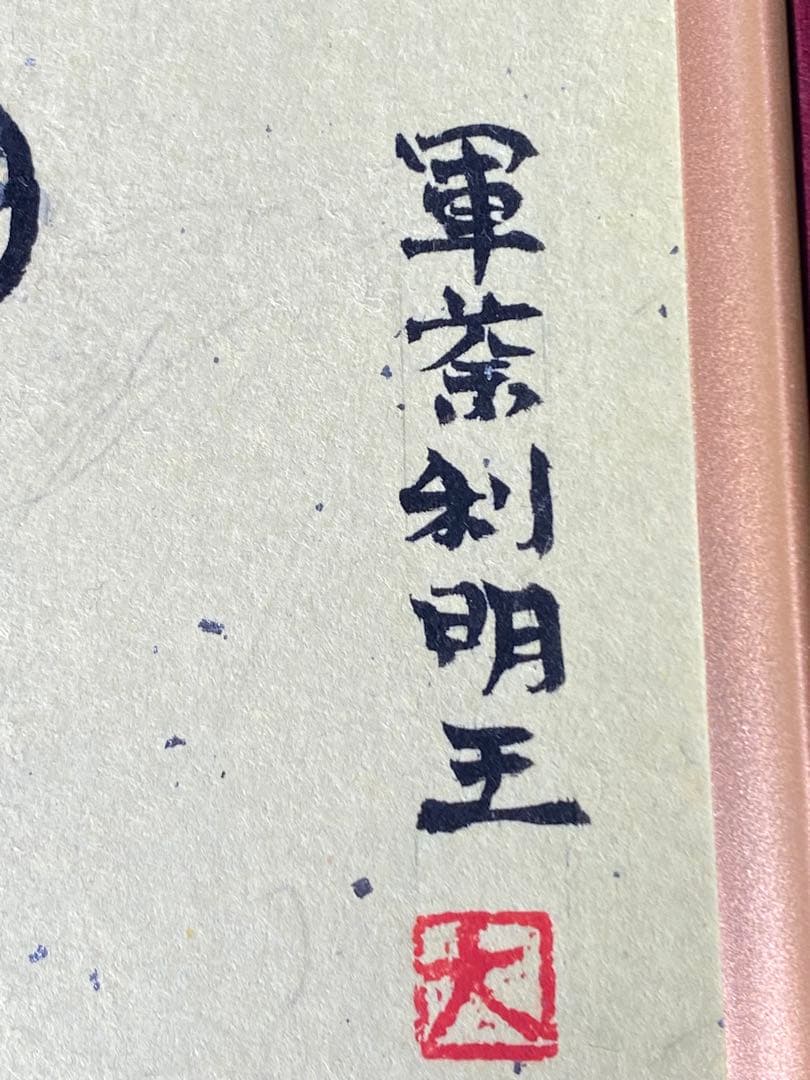 軍荼利明王
大